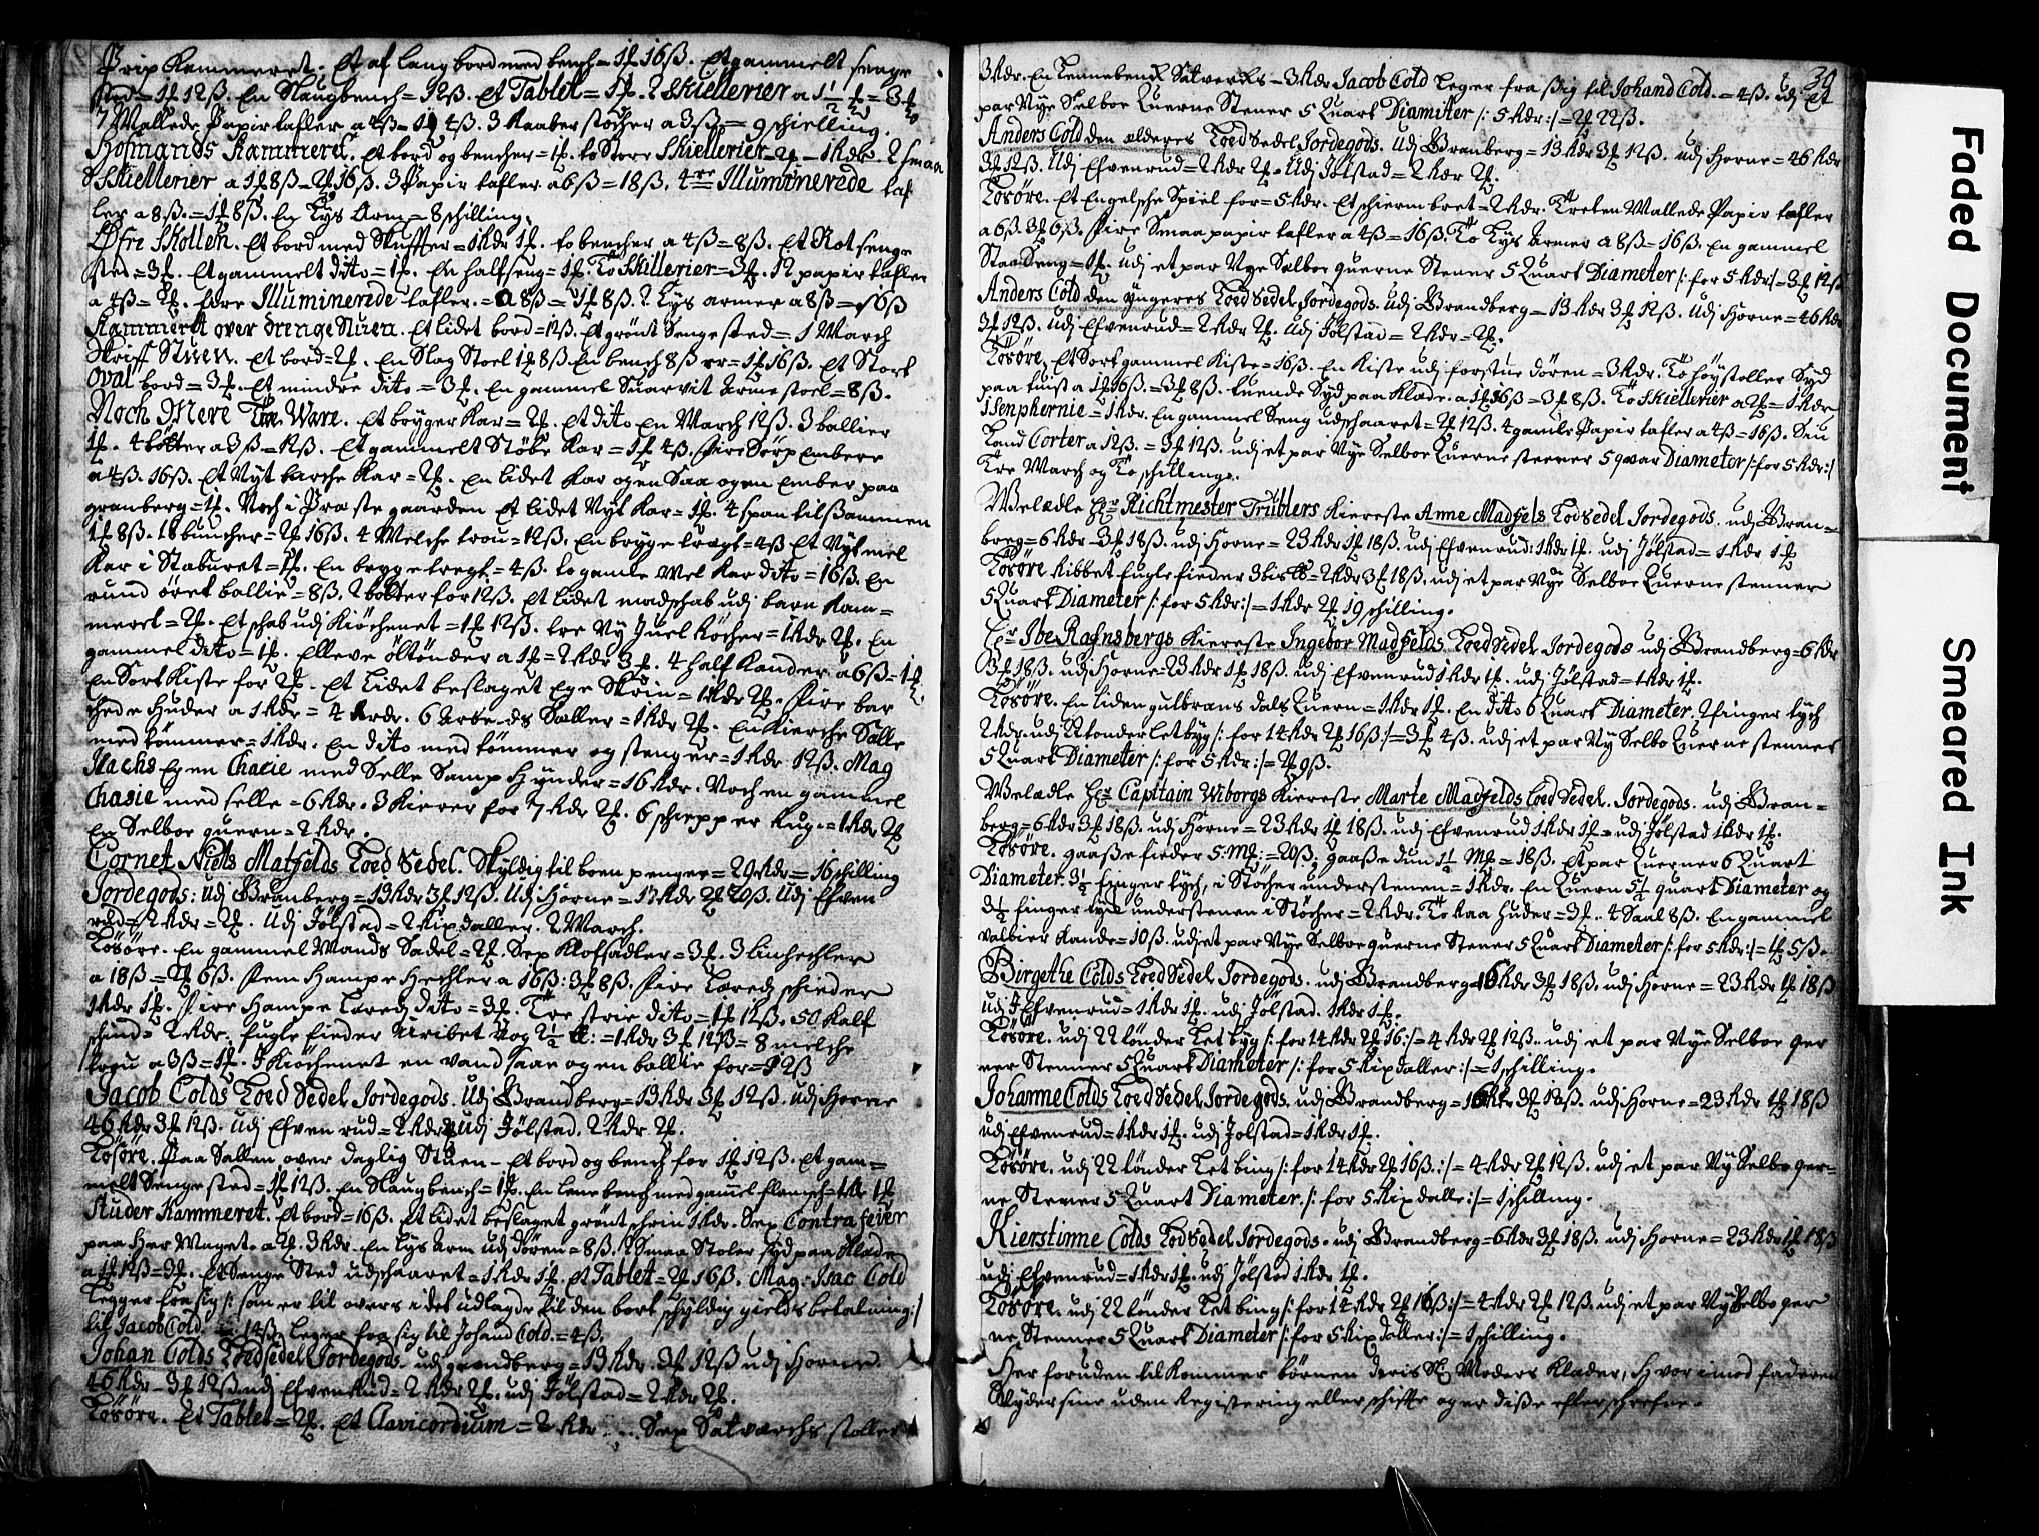 Prip Kammeret. Et af lang bord med bench = 1ƒ 16ß. Et gammelt senge
sted = 1ƒ 12ß. En Slaugbench = 12ß. Et Tablet = 1ƒ. 2 Skiellerier a 1½ ƒ = 3ƒ
7 Mallede Papir tafler a 4ß = 1ƒ 4ß. 3 Kaaber stöcher a 3ß = 9 schielling.
Hofmands Kammeret. Et bord og bencher = 1ƒ. to Store Skiellerier 2ƒ = 1 Rdr. 2 smaa
Skiellerier a 1ƒ 8ß = 2ƒ 16ß. 3 Papir tafler a 6ß = 18ß. 4re Illuminerede taf
ler a 8ß. = 1ƒ 8ß. En Lys Arm = 8 schilling.
Øfre Skollen. Et bord med Skuffer = 1 Rdr 1ƒ. to bencher a 4ß = 8ß. Et Rot senge
sted = 3ƒ. Et gammelt dito = 1ƒ. En halfseng = 1ƒ. To Skillerier = 3ƒ. 12 papir tafler
a 4ß = 2ƒ. fire Illuminerede tafler = a 8ß = 1ƒ 8ß. 2 Lys armer a 8ß = 16ß
Kammeret over Drenge Stuen. Et lidet bord = 12ß. Et grönt Sengested = 1 March
Skriff Stuen. Et bord = 2ƒ. En Slag Stoel 1ƒ 8ß. En bench 8ß er = 1ƒ 16ß. Et Stort
oval bord = 3ƒ. Et mindre dito = 3ƒ. En gammel Snarvit Arme stoel = 8ß.
Noch Mere Træ Ware. Et brygger Kar = 2ƒ. Et dito En March 12ß. 3 ballier
1ƒ. 4 bötter a 3ß = 12ß. Et gammelt Stöbe Kar = 1ƒ 4ß. fire Sörp Embere
a 4ß. 16ß. Et Nyt barche Kar = 2ƒ. En lidet Kar og en Saa og en Ember paa
granberg = 1ƒ. Noch i Præstegaarden Et lidet Nyt Kar = 1ƒ. 4 span tilßammen
1ƒ 8ß. 16 buncher = 2ƒ 16ß. 4 Melche trou = 12ß. En brygge tragt = 4ß Et Nyt mel
Kar i Staburet = 2ƒ. En bryggetregt = 4ß. to gamle Mel Kar dito = 16ß. En
rund öret ballie = 8ß. 2 bötter for 12ß. Et lidet madschab udj barn Kam=
meret = 2ƒ. Et schab udj Kiöchenet = 1ƒ 12ß. tre Ny Juel Röcher = 1 Rdr 2ƒ. En
gammel dito = 1ƒ. Elleve öltönder a 1ƒ = 2 Rdr 3ƒ. 4 half Kander a 6ß = 1ƒ
En Sort Kiste for 2ƒ. Et lidet beslaget Ege Skrin = 1 Rdr 2ƒ. fire bar
chede Huder a 1 Rdr = 4 Rdr. 6 Arbeids Sæller = 1 Rdr 2ƒ. En Kierche Sælle
med tömmer = 1 Rdr. En dito med tömmer og stenger = 1 Rdr 12ß. Mag
Isachs Egen Chasie med Selle Samp Hynder = 16 Rdr. Noch en gammel
Chasie med selle = 6 Rdr. 3 Kierer for 7 Rdr 2ƒ. 6 schepper Rug = 1 Rdr 2ƒ
En Selboe quern = 2 Rdr.
Cornet Niels Matzelds Loed Sedel. Skyldig til boen penger = 29 Rdr = 16 schilling
Jordegods: udj Branberg = 13 Rdr 3ƒ 12ß. Udj Horne = 17 Rdr 2ƒ 20ß. Udj Efven
rud = 2 Rdr = 2ƒ. Udj Jölstad = 2 Rixdaller. 2 March.
Lösöre. En gammel Mands Sadel = 2ƒ. Sex Klofsadler = 3ƒ. 3 linhechler
a 18ß = 2ƒ 6ß. fem Hampe Hechler a 16ß: 3ƒ 8ß. fire Læreds schieder
1 Rdr 1ƒ. fire Hampe Læreds dito = 3ƒ. Tre strie dito = 1ƒ 12ß. 50 Kalf
schind = 2 Rdr. fugle fieder Uribet 1 vog 2½ ℔: = 1 Rdr 3ƒ 12ß = 8 melche
trou a 3ß = 1ƒ. I Kiöchenet en vand saae og en ballie for = 12ß
Jacob Colds Loed Sedel Jordegods. Udj Brandberg = 13 Rdr 3ƒ 12ß. udj Horne
46 Rdr 3ƒ 12ß. udj Efvenrud = 2 Rdr 2ƒ udj Jölstad. 2 Rdr 2ƒ.
Lösöre. Paa Sallen over daglig Stuen = Et bord og bench for 1ƒ 12ß. Et gam=
melt Sengested = 1ƒ 12ß. En Slaugbench = 1ƒ. En lene bench med gamel flansch = 1 Rdr 1ƒ
Studer Kammeret. Et bord = 16ß. Et lidet beslaget grönt schrin 1 Rdr. Sex Contrafeier
paa Her Maget. a 2ƒ. 3 Rdr. En Lys Arm udj dören = 8ß. 2 Smaa Stoler syd paa Klæde
a 1ƒ 12ß = 3ƒ. Et Senge Sted udschaaret = 1 Rdr 1ƒ. Et Tablet = 2ƒ 16ß. Mag: Isac Cold
Legger fra sig /: som er til overs a det udlagde til den bort schyldig gields betalning :/
til Jacob Cold. 14ß. Leger fra sig til Johand Cold. = 4ß.
Johan Colds Loedsedel Jordegods. udj grandberg = 13 Rdr. 3ƒ 12ß udj Horne
46 Rdr = 3ƒ 12ß. udj Efvenrud = 2 Rdr 2ƒ. udj Jölstad = 2 Rdr 2ƒ.
Lösöre. Et Tablet = 2ƒ. Et Clavicordium = 2 Rdr. Sex Satvarchs stoller
39
3 Rdr. En lennebench Satverks = 3 Rdr Jacob Cold Leger fra ßig til Johand Cold. = 4ß. udj Et
par Nye Selboe Querne Stener 5 Quart Diamiter /: 5 Rdr :/ = 2ƒ 22ß.
Anders Cold den alderes Loed Sedel Jordegods. Udj Branberg = 13 Rdr 3ƒ 12ß. udj Horne = 46 Rdr
3ƒ 12ß. Udj Efvenrud = 2 Rdr 2ƒ. Udj Jölstad = 2 Rdr 2ƒ.
Lösöre. Et Engelsche Spiel for = 5 Rdr. Et schierm bret = 2 Rdr. Tretten Mallede Papir tafler
a 6ß. 3ƒ 6ß. fire Smaa papir tafler a 4ß = 16ß. To Lys Armer a 8ß = 16ß. En gammel
Staa Seng = 1ƒ. udj et par Nye Selboe querne Stener 5 Quart Diameter /: for 5 Rdr :/ = 3ƒ 12ß
Anders Cold den yngeres Loed Sedel Jordegods. udj Brandberg = 13 Rdr 3ƒ 12ß. Udj Horne = 46 Rdr
3ƒ 12ß. Udj Efvenrud = 2 Rdr 2ƒ. Udj Jölstad = 2 Rdr = 2ƒ.
Lösöre. Et Sort gammel Kiste = 16ß. En Kiste udj forstue dören = 3 Rdr. To höystoller Syd
paa tuist a 1ƒ 16ß. = 3ƒ 8ß. tuende Syd paa Klæde. a 1ƒ 16ß = 3ƒ 8ß. To Skiellerier a 2ƒ = 1 Rdr
isenphernie = 1 Rdr. En gammel Seng udschaaret = 2ƒ 12ß. 4 gamle Papir tafler a 4ß = 16ß. Siu
Land Corter a 12ß. = 3ƒ 12ß. udj et par Nye Selboe Querne steener 5 qvar Diameter /: for 5 Rdr :/
Tre March og To schillings.
Welædle Hr Richtmester Trublers Kiereste Anne Madzels Loedsedel Jordegods. udj Bran=
berg = 6 Rdr = 3ƒ 18ß. udj Horne = 23 Rdr 1ƒ 18ß. udj Efvenrud: 1 Rdr 1ƒ. udj Jölstad = 1 Rdr 1ƒ
Lösöre Ribbet fugle fieder 3 bis℔ = 2 Rdr 3ƒ 18ß. udj et par Nye Selboe Querne stenner
5 Quart Diameter /: for 5 Rdr :/ = 1 Rdr 2ƒ 19 schilling.
Hr Ibe Rafnsbergs Kiereste Ingebor Madzelds Loed Sedel Jordegods udj Brandberg = 6 Rdr
3ƒ 18ß. udj Horne = 23 Rdr 1ƒ 18ß. udj Efvenrud 1 Rdr 1ƒ. udj Jölstad = 1 Rdr 1ƒ.
Lösöre. En liden gulbrans dals Quern = 1 Rdr 1ƒ. En dito 6 Quart Diameter. 7 finger tych
2 Rdr. udj 22 tonder let byg /: for 14 Rdr 2ƒ 16ß :/ = 3ƒ 4ß. udj et par Ny Selbo Querne stenner
5 Quart Diameter /: for 5 Rdr :/ = 2ƒ 9ß.
Welædle Hr Capttain Wiborgs Kiereste Marte Madzelds Loed Sedel. Jordegods. udj Bran=
berg = 6 Rdr 3ƒ 18ß. udj Horne = 23 Rdr 1ƒ 18ß. udj Efvenrud 1 Rdr 1ƒ = udj Jölstad 1 Rdr 1ƒ.
Lösöre. gaaße fieder 5. M℔: = 20ß. gaaße dun 1½ M℔ = 18ß. Et par Querner 6 Quart
Diameter. 3½ finger tych, i Stöcher understenen = 1 Rdr. En Quern 5½ quart Diameter og
3½ finger tych understenen i Stöcher = 2 Rdr. To Raa huder = 3ƒ. 4 Saal 8ß. En gammel
Valbier Kande = 10ß. udj et par Nye Selboe querne Stener 5 Quart Diameter /: for 5 Rdr :/ = 1ƒ 5ß.
Birgethe Colds Loed Sedel Jordegods. udj Brandberg = 6 Rdr 3ƒ 18ß. udj Horne = 23 Rdr 1ƒ 18ß
udj Efvenrud = 1 Rdr 1ƒ. udj Jölstad. 1 Rdr 1ƒ.
Lösöre. udj 22 tönder Let byg /: for 14 Rdr 2ƒ 16 :/ = 4 Rdr 2ƒ 12ß. udj et par Nye Selboe qer
ner Stenner 5 Quart Diameter /: for 5 Rixdaller :/ = 1 schilling.
Johanne Colds Loed Sedel Jordegods. udj Brandberg = 6 Rdr 3ƒ 18ß. udj Horne = 23 Rdr 1ƒ 18ß
udj Efvenrud = 1 Rdr 1ƒ. udj Jolstad = 1 Rdr 1ƒ.
Lösöre. udj 22 tönder Let bing /: for 14 Rdr 2ƒ 16ß. :/ = 4 Rdr 2ƒ 12ß. udj et par Ny Selbo qer=
ne Stener 5 Quart Diameter. /: for 5 Rixdalle :/ = 1 schilling.
Kierstinne Colds Loed Sedel Jordegods. udj Brandberg = 6 Rdr 3ƒ 18ß. udj Horne = 23 Rdr 1ƒ 18ß
udj Efvenrud = 1 Rdr 1ƒ. udj Jölstad 1 Rdr 1ƒ.
Lösöre. udj 22 tönder Let bing /: for 14 Rdr 2ƒ 16ß :/ = 4 Rdr 2ƒ 12ß. udj et par Ny Selbo qer
ne Stenner 5 Quart Diameter /: for 5 Rixdaller :/ = 1 schilling.
Her foruden til Kommer börnen deris Sl: Moders Klæder, Hvorimod faderen
Nyder sine uden Registering eller schifte og er diße efterschrefne.
Faded Document
Smeared Ink